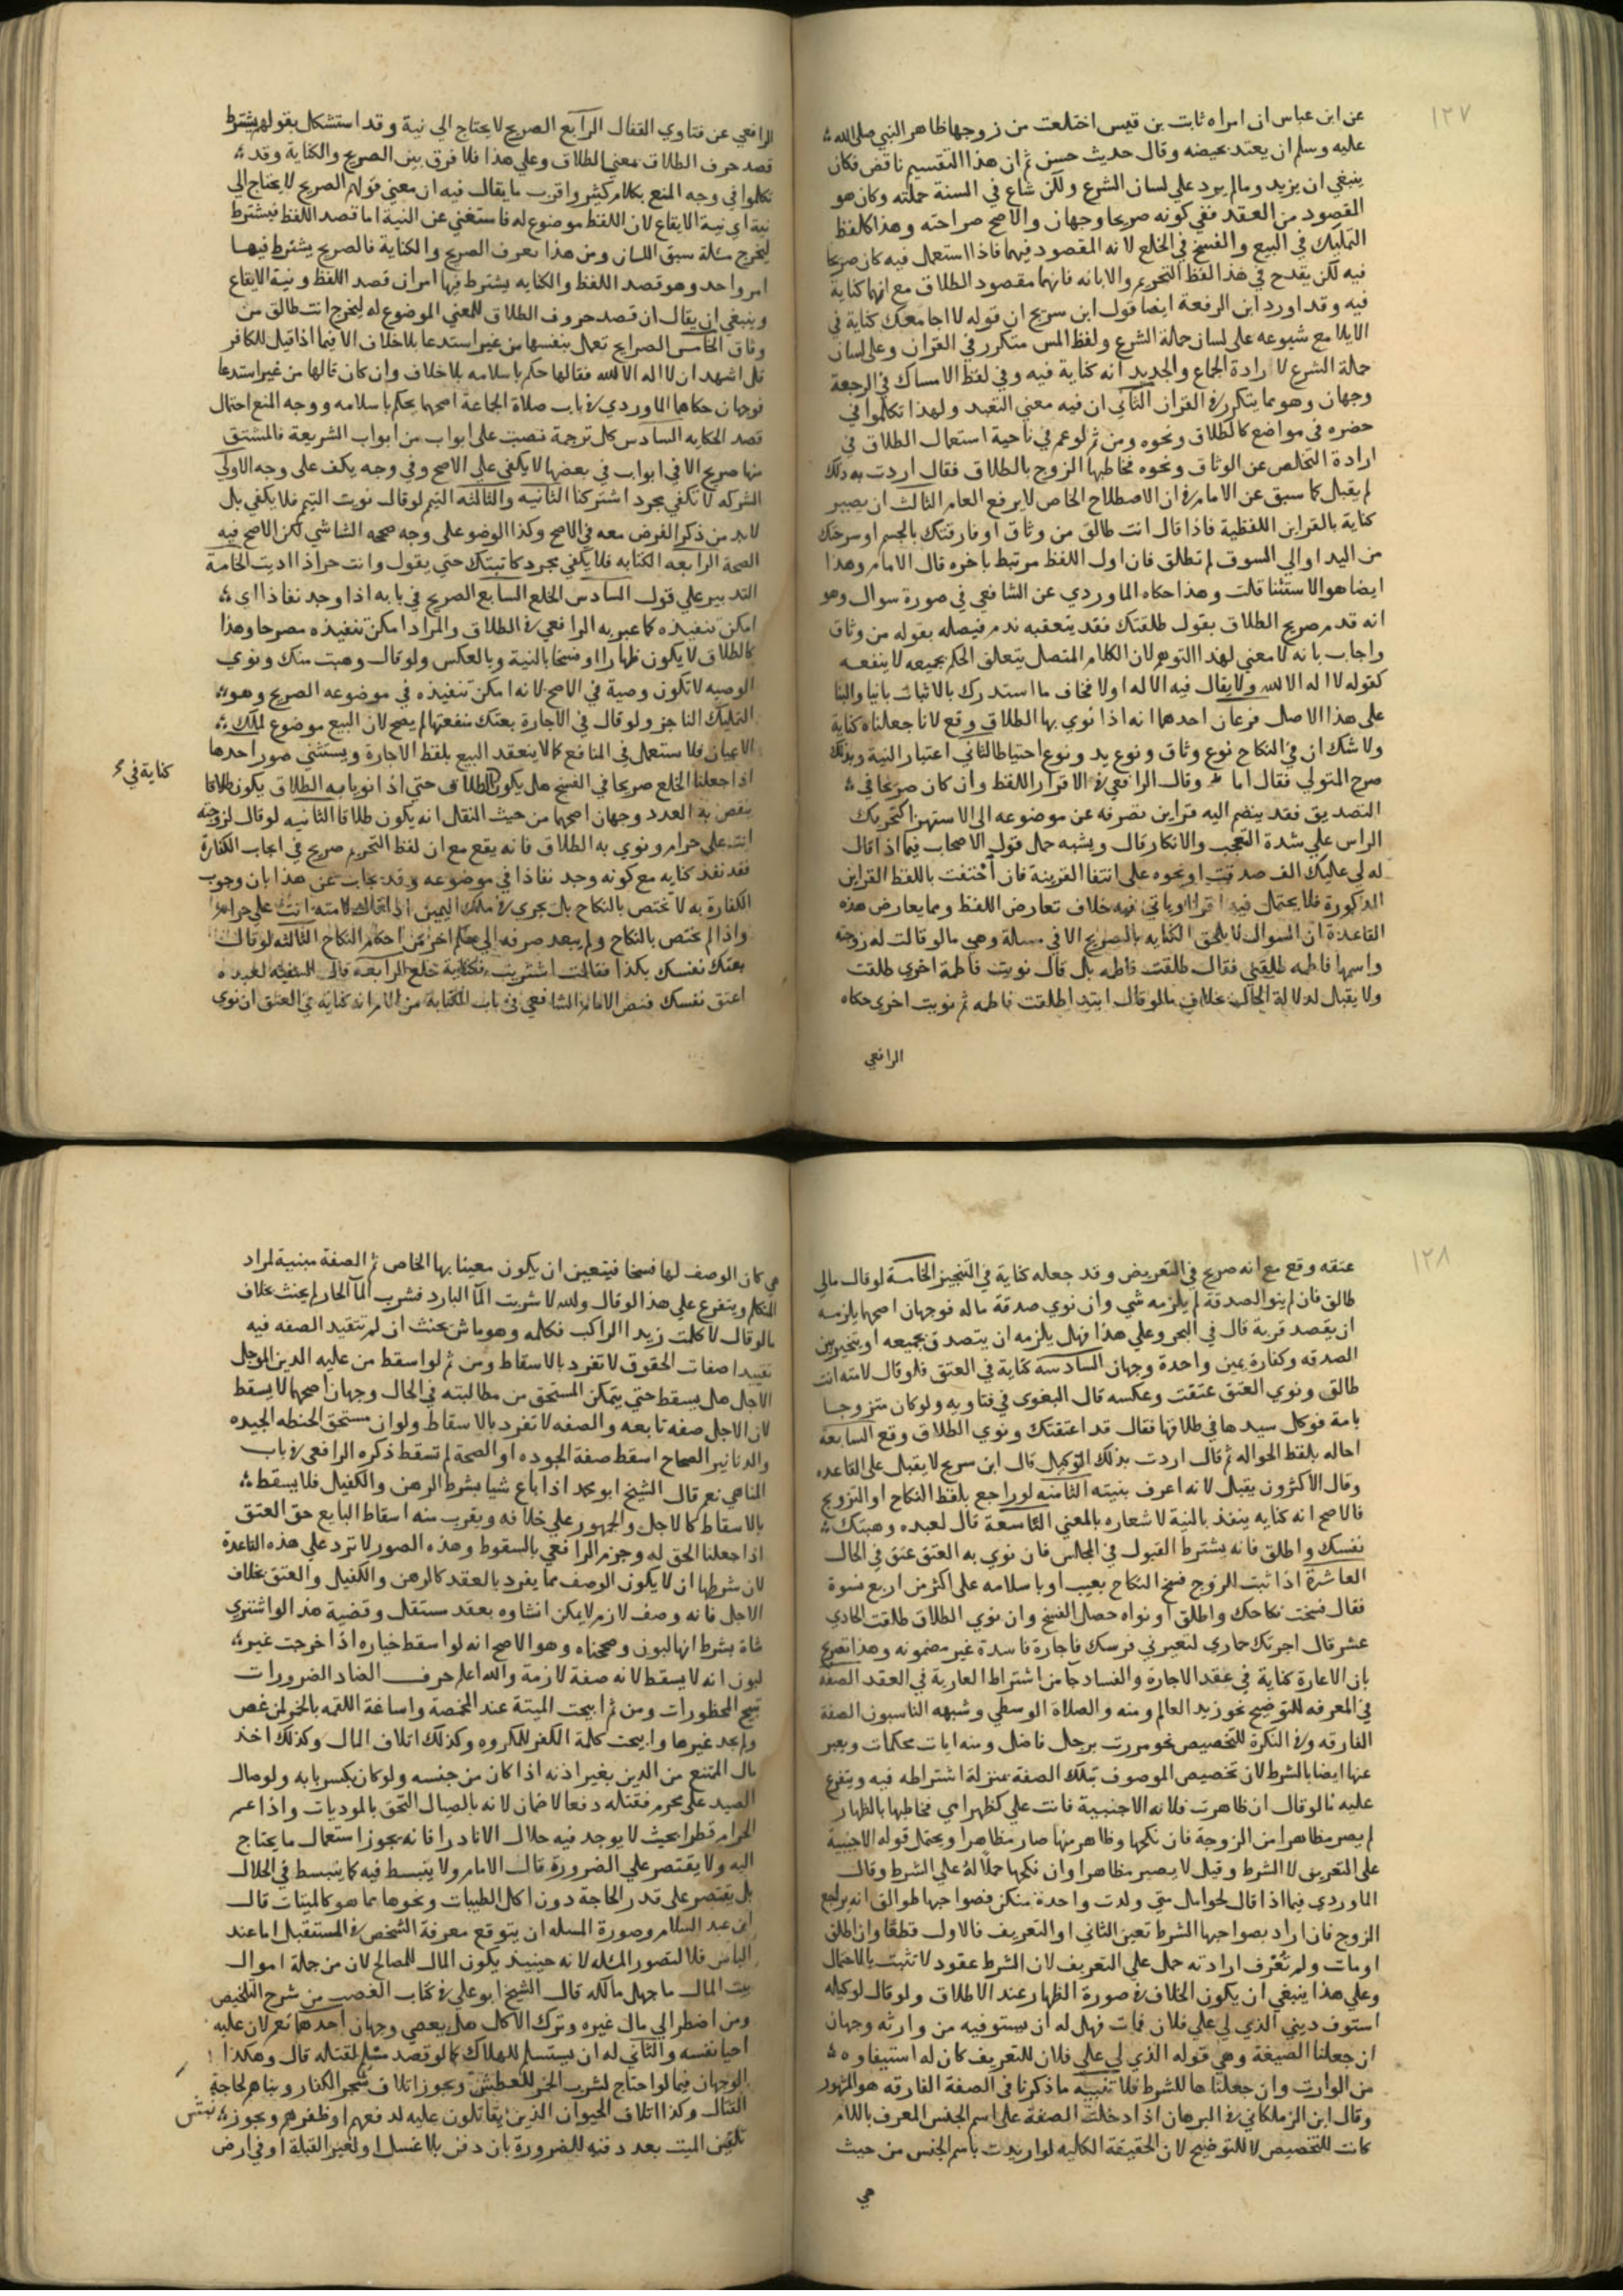 ١٢٧
عن ابن عباس ان امراه ثابت بن قيس اختلعت من زوجها ظاهر النبي صلى الله
عليه وسلم ان يعتد بحيضه وقال حديث حسن ثم ان هذا التقسيم ناقص فكان
ينبغي ان يزيد ومالم يرد علي لسان الشرع ولكن شاع في السنة حملته وكان هو
المقصود من العقد ففي كونه صريحا وجهان والاصح صراحته وهذا كلفظ
التمليك في البيع والفسخ في الخلع لانه المقصود فيهما فاذا استعمل فيه كان صريحا
فيه لكن يقدح في هذا لفظ التحريم والابانه فانهما مقصود الطلاق مع انهما كناية
فيه وقد اورد ابن الرفعة ايضا قول ابن سريج ان قوله لا اجامعك كناية في
الايلا مع شيوعه على لسان حملة الشرع ولفظ المس متكرر في القران وعلى لسان
حملة الشرع لارادة الجماع والجديد انه كناية فيه وفي لفظ الامساك في الرجعة
وجهان وهو مما يتكرر في القران الثاني ان فيه معني التعبد ولهذا تكلموا في
حضره في مواضع كالطلاق ونحوه ومن ثم لو عم في ناحية استعمال الطلاق في
ارادة التخلص عن الوثاق ونحوه فخاطبها الزوج بالطلاق فقال اردت به ذلك
لم يقبل كما سبق عن الامام في ان الاصطلاح الخاص لا يرفع العام الثالث ان يصير
كناية بالقراين اللفظية فاذا قال انت طالق من وثاق او فارقتك بالجسم او سرحتك
من اليد او الي السوق لم تطلق فان اول اللفظ مرتبط باخره قال الامام وهذا
ايضا هو الاستثنا قلت وهذا حكاه الماوردي عن الشافعي في صورة سوال وهو
انه قدم صريح الطلاق بقول طلقتك فقد يتعقبه ندم فيصله بقوله من وثاق
واجاب بانه لا معني لهذا التوهم لان الكلام المتصل يتعلق الحكم بجميعه لا ينفعه
كقوله لا اله الا الله ولا يقال فيه الا له اولا فخاف ما استدرك بالاثبات بانيا والبنا
على هذا الاصل فرعان احدهما انه اذا نوي بها الطلاق وقع لانا جعلناه كناية
ولا شك ان في النكاح نوع وثاق ونوع يد ونوع احتياط الثاني اعتبار النية وبذلك
صرح المتولي فقال اما وقال الرافعي في الاقرار اللفظ وان كان صريحا في
التصديق فقد ينضم اليه قراين تصرفه عن موضوعه الى الاستهزا كتحريك
الراس علي شدة التعجب والانكار قال ويشبه حمل قول الاصحاب فيما اذا قال
له لي عليك الف صدقت او نحوه على انتفا القرينة فان احتفت باللفظ القراين
المذكورة فلا يحتمل فيه اقرارا وياتي فيه خلاف تعارض اللفظ ومما يعارض هذه
القاعدة ان السوال لا يلحق الكنايه بالصريح الا في مسالة وهي مالو قالت له زوجته
واسمها فاطمه طلقني فقال طلقت فاطمه بل قال نويت فاطمة اخري طلقت
ولا يقبل لدلالة الحال بخلاف مالو قال ابتدا طلقت فاطمه ثم نويت اخري حكاه
الرافعي
الرافعي عن فتاوي القفال الرابع الصريح لا يحتاج الى نية وقد استشكل بقولهم يشترط
قصد حرف الطلاق معني الطلاق وعلي هذا فلا فرق بين الصريح والكناية وقد
تكلموا في وجه المنع بكلام كثير واقرب ما يقال فيه ان معني قولهم الصريح لا يحتاج الى
نية اي نية الايقاع لان اللفظ موضوع له فاستغني عن النية اما قصد اللفظ فيشترط
ليخرج مسئلة سبق اللسان ومن هذا تعرف الصريح والكناية فالصريح يشترط فيها
امر واحد وهو قصد اللفظ والكنايه يشترط فيها امران قصد اللفظ ونية الايقاع
وينبغي ان يقال ان قصد حروف الطلاق للمعني الموضوع له ليخرج انت طالق من
وثاق الخامس الصرايح تعمل بنفسها من غير استدعا بلا خلاف الا فيما اذا قيل للكافر
قل اشهد ان لا اله الا الله فقالها حكم باسلامه بلا خلاف وان كان قالها من غير استدعا
فوجهان حكاهما الماوردي في باب صلاة الجماعة اصحهما يحكم باسلامه ووجه المنع احتمال
قصد الحكايه السادس كل ترجمة نصبت على ابواب من ابواب الشريعة فالمشتق
منها صريح الا في ابواب في بعضها لا يكفي علي الاصح وفي وجه يكف على وجه الاولي
الشركه لا تكفي بمجرد اشتركنا الثانيه والثالثه التيمم لو قال نويت التيمم فلا يكفي بل
لابد من ذكر الفرض معه في الاصح وكذا الوضو على وجه صححه الشاشي لكن الاصح فيه
الصحة الرابعه الكتابه فلا يكفي مجرد كاتبتك حتي يقول وانت حر اذا اديت الخامسة
التدبير علي قول السادس الخلع السابع الصريح في بابه اذا وجد نفاذا اي
امكن تنفيذه كما عبر به الرافعي في الطلاق والمراد امكن تنفيذه مصرحا وهذا
كالطلاق لا يكون ظهارا او فسخا بالنية وبالعكس ولو قال وهبت منك ونوي
الوصيه لا تكون وصية في الاصح لانه امكن تنفيذه في موضوعه الصريح وهو
التمليك الناجز ولو قال في الاجارة بعتك منفعتها لم يصح لان البيع موضوع لملك
الاعيان فلا يستعمل في المنافع كما لا ينعقد البيع بلفظ الاجارة ويستثني صور احدها
اذا جعلنا الخلع صريحا في الفسخ هل يكون الطلاق حتي اذا نويا به الطلاق يكون طلاقا
كناية في
ينقص به العدد وجهان اصحهما من حيث النقل انه يكون طلاقا الثانيه لو قال لزوجته
انت علي حرام ونوي به الطلاق فانه يقع مع ان لفظ التحريم صريح في ايجاب الكفارة
فقد نفذ كنايه مع كونه وجد نفاذا في موضوعه وقد يجاب عن هذا بان وجوب
الكفارة به لا تختص بالنكاح بل يجري في ملك اليمين اذا قال لامته انت علي حرام
واذا لم يختص بالنكاح ولم يبعد صرفه الي حكم اخر من احكام النكاح الثالثه لو قالت
بعتك نفسك بكذا فقالت اشتريت فكناية خلع الرابعه قال السفيه لعبده
اعتق نفسك فنص الامام الشافعي في باب الكتابة من الام انه كناية في العتق ان نوي
١٢٨
عتقه وقع مع انه صريح في التعريض وقد جعله كناية في التنجيز الخامسة لو قال مالي
طالق فان لم ينو الصدقة لم يلزمه شي وان نوي صدقة ماله فوجهان اصحهما يلزمه
ان يقصد قربة قال في البحر وعلي هذا فهل يلزمه ان يتصدق بجميعه او يتخير بين
الصدقه وكفارة يمين واحدة وجهان السادسة كناية في العتق فلو قال لامته انت
طالق ونوي العتق عتقت وعكسه قال البغوي في فتاويه ولو كان متزوجا
بامة فوكل سيدها في طلاقها فقال قد اعتقتك ونوي الطلاق وقع السابعة
احاله بلفظ الحواله ثم قال اردت بذلك التوكيل قال ابن سريج لا يقبل على القاعده
وقال الاكثرون يقبل لانه اعرف بنيته الثامنه لو راجع بلفظ النكاح او التزويج
فالاصح انه كنايه ينفذ بالنية لاشعاره بالمعني التاسعة قال لعبده وهبتك
نفسك واطلق فانه يشترط القبول في المجلس فان نوي به العتق عتق في الحال
العاشرة اذا ثبت للزوج فسخ النكاح بعيب او باسلامه على اكثر من اربع نسوة
فقال فسخت نكاحك واطلق او نواه حصل الفسخ وان نوي الطلاق طلقت الحادي
عشر قال اجرتك حماري لتعيرني فرسك فاجارة فاسدة غير مضمونه وهذا تصريح
بان الاعارة كناية في عقد الاجارة والفساد جا من اشتراط العارية في العقد الصفة
في المعرفه للتوضيح نحو زيد العالم ومنه والصلاة الوسطي وشبهه الناسبون الصفة
الفارقه وفي النكرة للتخصيص نحو مررت برجل فاضل ومنه ايات محكمات ويعبر
عنها ايضا بالشرط لان تخصيص الموصوف بتلك الصفة بمنزلة اشتراطه فيه ويتفرع
عليه مالو قال ان ظاهرت فلانه الاجنبية فانت علي كظهر امي فخاطبها بالظهار
لم يصر مظاهرا من الزوجة فان نكحها وظاهر منها صار مظاهرا ويحتمل قوله الاجنبية
على التعريف لا الشرط وقيل لا يصير مظاهرا وان نكحها حملا له علي الشرط وقال
الماوردي فيما اذا قال لحوامل متي ولدت واحدة منكن فصواحبها طوالق انه يراجع
الزوج فان اراد بصواحبها الشرط تعين الثاني او التعريف فالاول قطعا وان اطلق
او مات ولم تعرف ارادته حمل علي التعريف لان الشرط عقود لا تثبت بالاحتمال
وعلي هذا ينبغي ان يكون الخلاف في صورة الظهار عند الاطلاق ولو قال لوكيله
استوف ديني الذي لي علي فلان فمات فهل له ان يستوفيه من وارثه وجهان
ان جعلنا الصيغة وهي قوله الذي لي علي فلان للتعريف كان له استيفاوه
من الوارث وان جعلناها للشرط فلا تنبيه ما ذكرنا في الصفة الفارقه هو المشهور
وقال ابن الزملكاني في البرهان اذا دخلت الصفة على اسم الجنس المعرف باللام
كانت للتخصيص لا للتوضيح لان الحقيقة الكليه لو اريدت باسم الجنس من حيث
هي
هي كان الوصف لها نسخا فيتعين ان يكون معينا بها الخاص ثم الصفة مبنية لمراد
المتكلم ويتفرع علي هذا لو قال والله لا شربت الما البارد فشرب الما الحار لم يحنث بخلاف
مالو قال لا كلمت زيدا الراكب فكلمه وهو ماش يحنث ان لم تتقيد الصفه فيه
تقييدا صفات الحقوق لا تفرد بالاسقاط ومن ثم لو اسقط من عليه الدين الموجل
الاجل هل يسقط حتي يتمكن المستحق من مطالبته في الحال وجهان اصحهما لا يسقط
لان الاجل صفه تابعه والصفه لا تفرد بالاسقاط ولو ان مستحق الحنطه الجيده
والدنانير الصحاح اسقط صفة الجوده او الصحة لم تسقط ذكره الرافعي في باب
المناهي نعم قال الشيخ ابو محمد اذا باع شيا بشرط الرهن والكفيل فلا يسقط
بالاسقاط كالاجل والجمهور علي خلافه ويقرب منه اسقاط البايع حق العتق
اذا جعلنا الحق له وجزم الرافعي بالسقوط وهذه الصور لا ترد علي هذه القاعدة
لان شرطها ان لا يكون الوصف مما يفرد بالعقد كالرهن والكفيل والعتق بخلاف
الاجل فانه وصف لازم لا يمكن انشاوه بعقد مستقل وقضية هذا لو اشتري
شاة بشرط انها لبون وصححناه وهو الاصح انه لو اسقط خياره اذا خرجت غير
لبون انه لا يسقط لانه صفة لازمة والله اعلم حرف الضاد الضرورات
تبيح المحظورات ومن ثم ابيحت الميتة عند المخمصة واساغة اللقمه بالخمر لمن غص
ولم يجد غيرها وابيحت كلمة الكفر للمكروه وكذلك اتلاف المال وكذلك اخذ
مال الممتنع من الدين بغير اذنه اذا كان من جنسه ولو كان بكسر بابه ولو صال
الصيد على محرم فقتله دفعا لا ضمان لانه بالصيال التحق بالموذيات واذا عم
الحرام قطرا بحيث لا يوجد فيه حلال الا نادرا فانه يجوز استعمال ما يحتاج
اليه ولا يقتصر علي الضرورة قال الامام ولا يتبسط فيه كما يتبسط في الحلال
بل يقتصر على قدر الحاجة دون اكل الطيبات ونحوها مما هو كالميتات قال
ابن عبد السلام وصورة المسله ان يتوقع معرفة الشخص في المستقبل اما عند
الياس فلا تتصور المسله لانه حينيذ يكون المال للمصالح لان من جملة اموال
بيت المال ما جهل مالكه قال الشيخ ابو علي في كتاب الغصب من شرح التلخيص
ومن اضطر الي مال غيره وترك الاكل هل يعصي وجهان احدهما نعم لان عليه
احيا نفسه والثاني له ان يستسلم للهلاك كما لو قصد مسلم لقتله قال وهكذا
الوجهان فيما لو احتاج لشرب الخمر للعطش ويجوز اتلاف شجر الكفار وبناهم لحاجة
القتال وكذا اتلاف الحيوان الذين يقاتلون عليه لدفعهم او ظفرهم ويجوز نبش
تكفين الميت بعد دفنه للضرورة بان دفن بلا غسل او لغير القبلة او في ارض